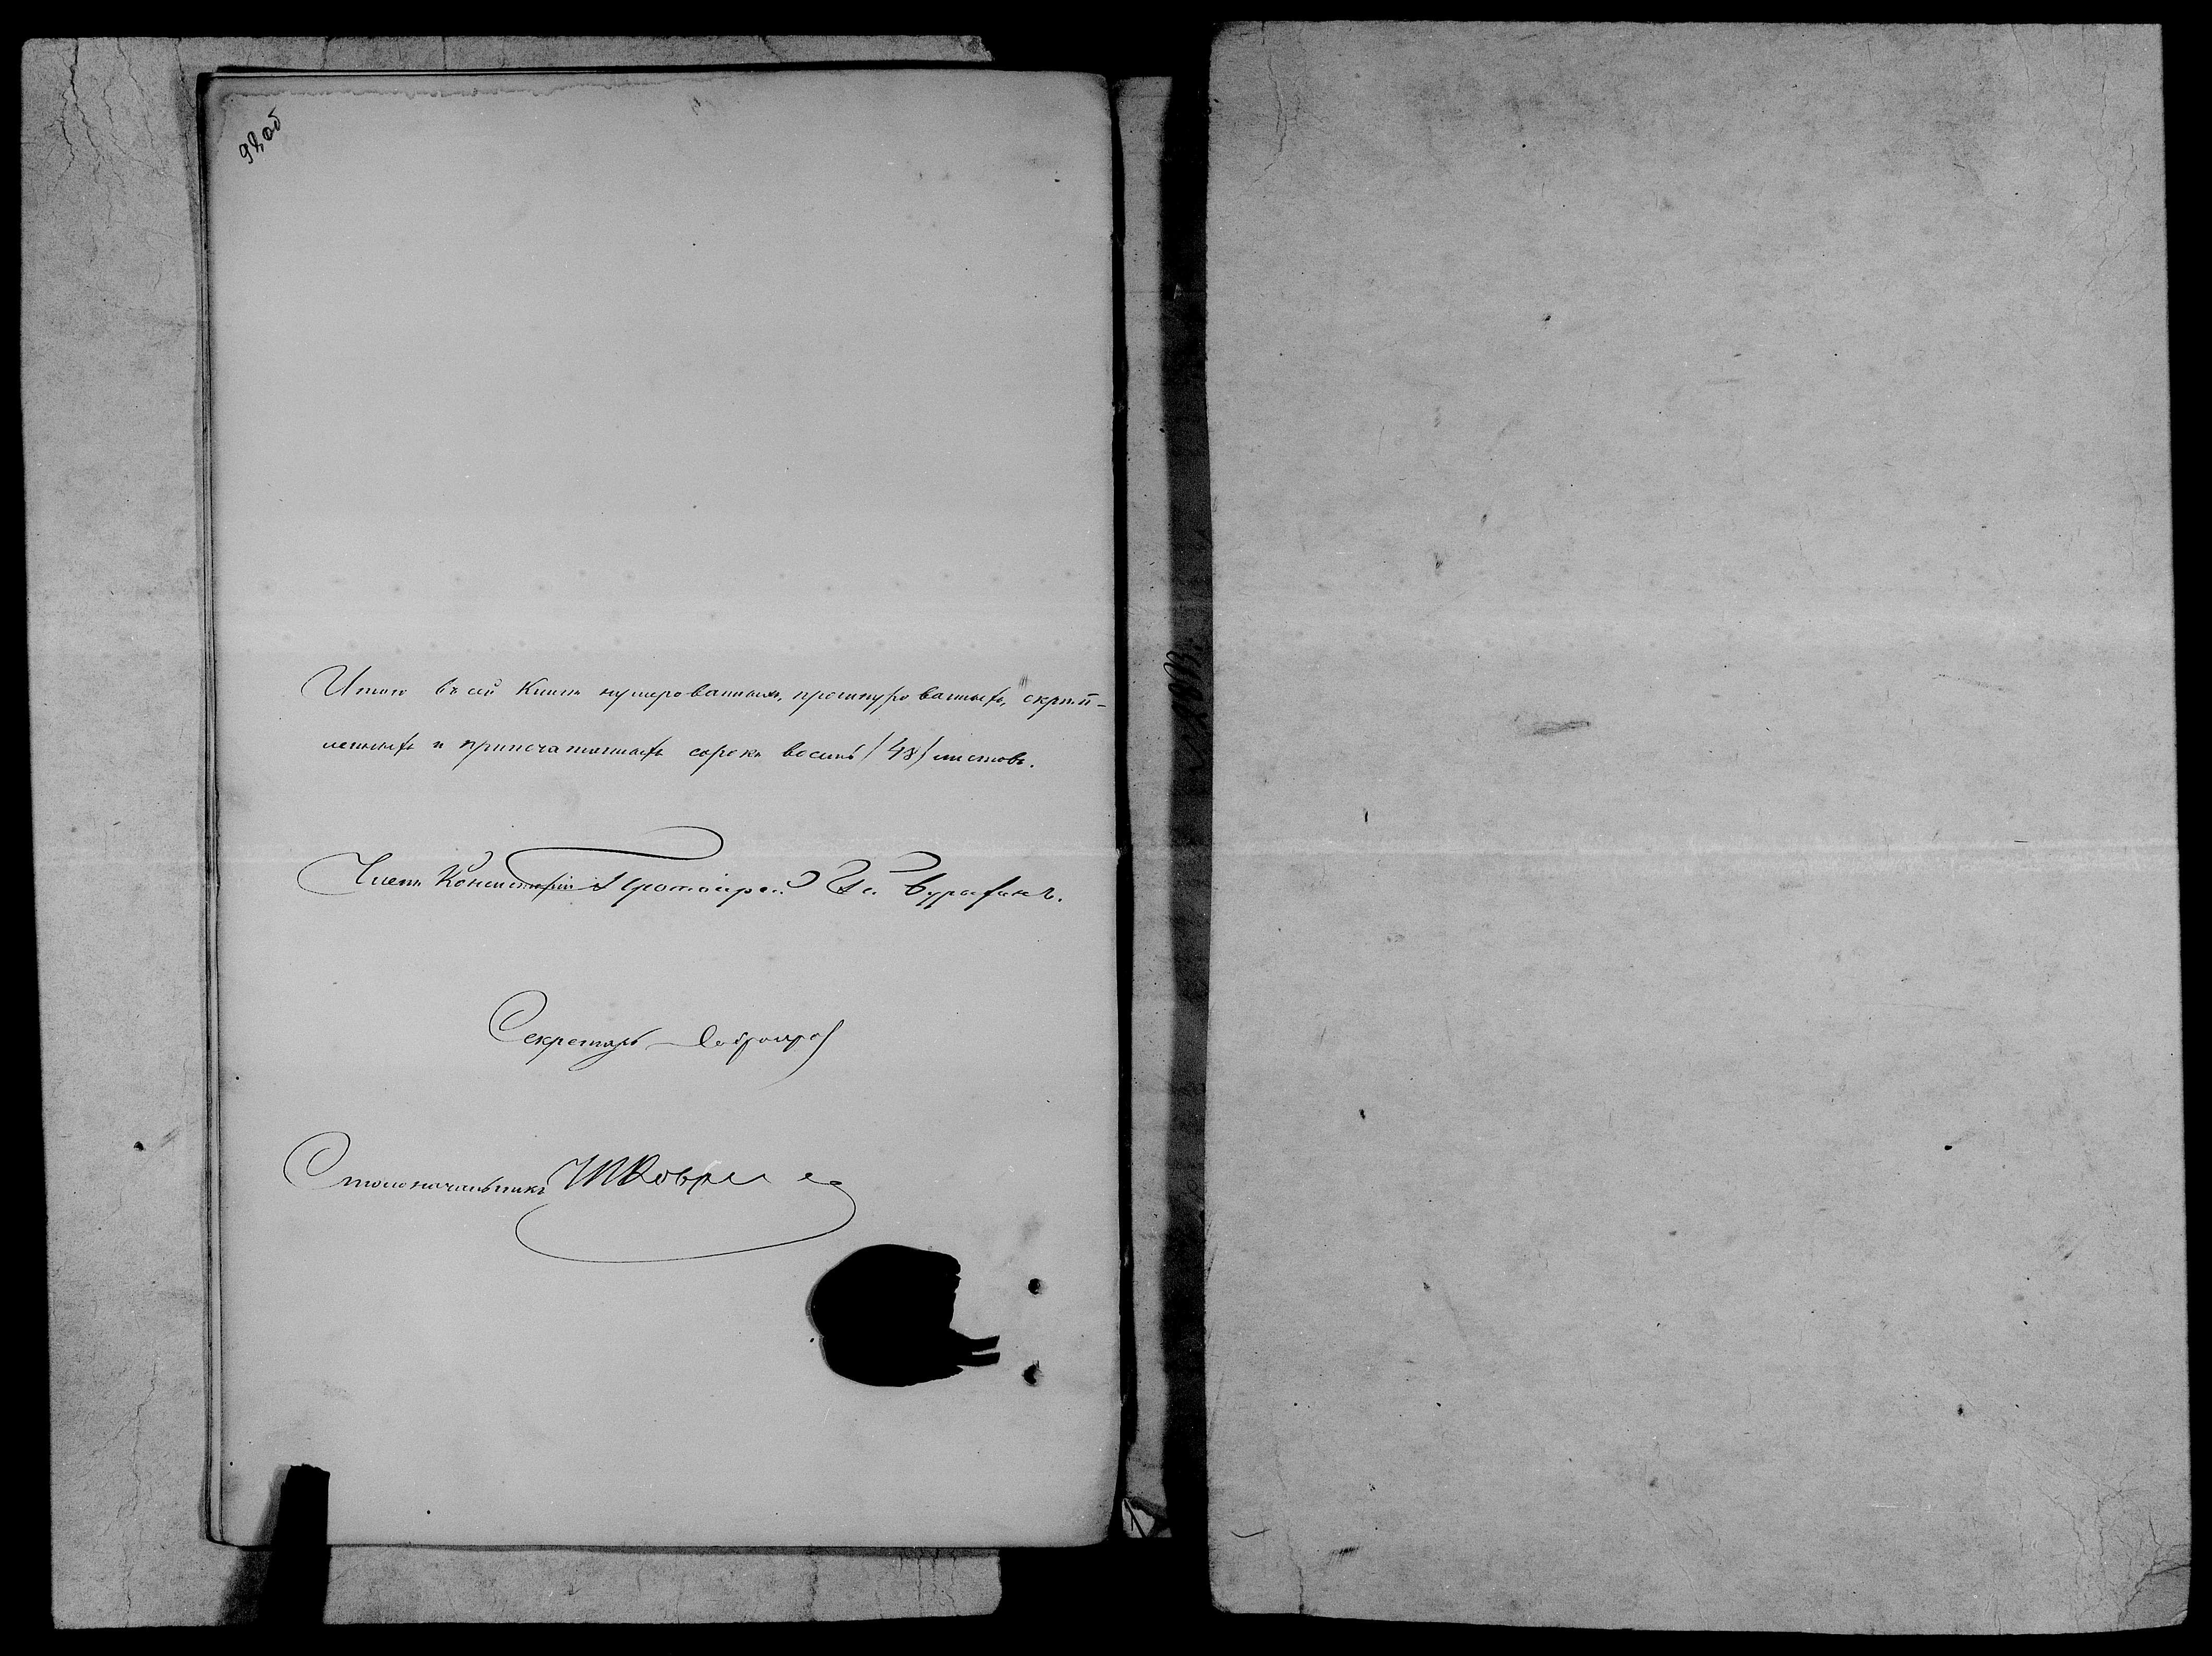 98 об
Итого въ сей Книгѣ нумерованныхъ, прошнурованныхъ, скрѣп-
ленныхъ и припечатанныхъ сорокъ восемь (48) листовъ.
Членъ Консисторіи Протоіерей
Секретарь
Столоначальникъ